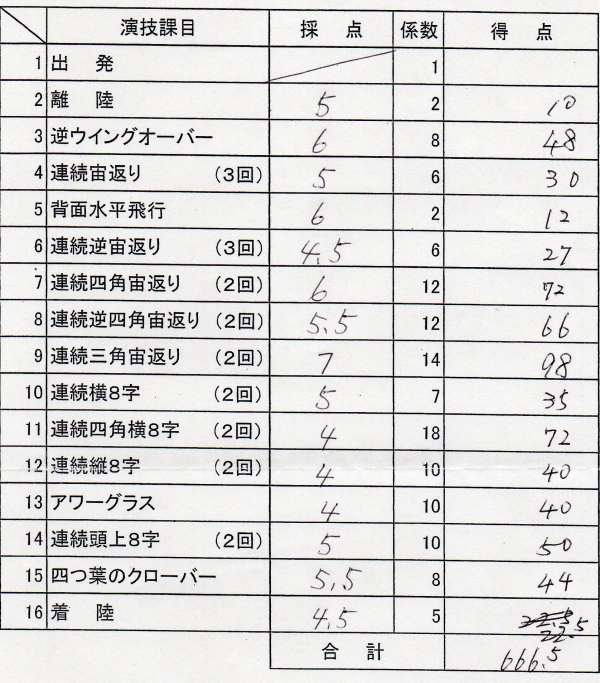 演技課目 採点 係数 得点
1 出発 1
2 離陸 5 2 10
3 逆ウイングオーバー 6 8 48
4 連続宙返り (3回) 5 6 30
5 背面水平飛行 6 2 12
6 連続逆宙返り (3回) 4.5 6 27
7 連続四角宙返り (2回) 6 12 72
8 連続逆四角宙返り (2回) 5.5 12 66
9 連続三角宙返り (2回) 7 14 98
10 連続横8字 (2回) 5 7 35
11 連続四角横8字 (2回) 4 18 72
12 連続縦8字 (2回) 4 10 40
13 アワーグラス 4 10 40
14 連続頭上8字 (2回) 5 10 50
15 四つ葉のクローバー 5.5 8 44
16 着陸 4.5 5 22.5
合計 666.5